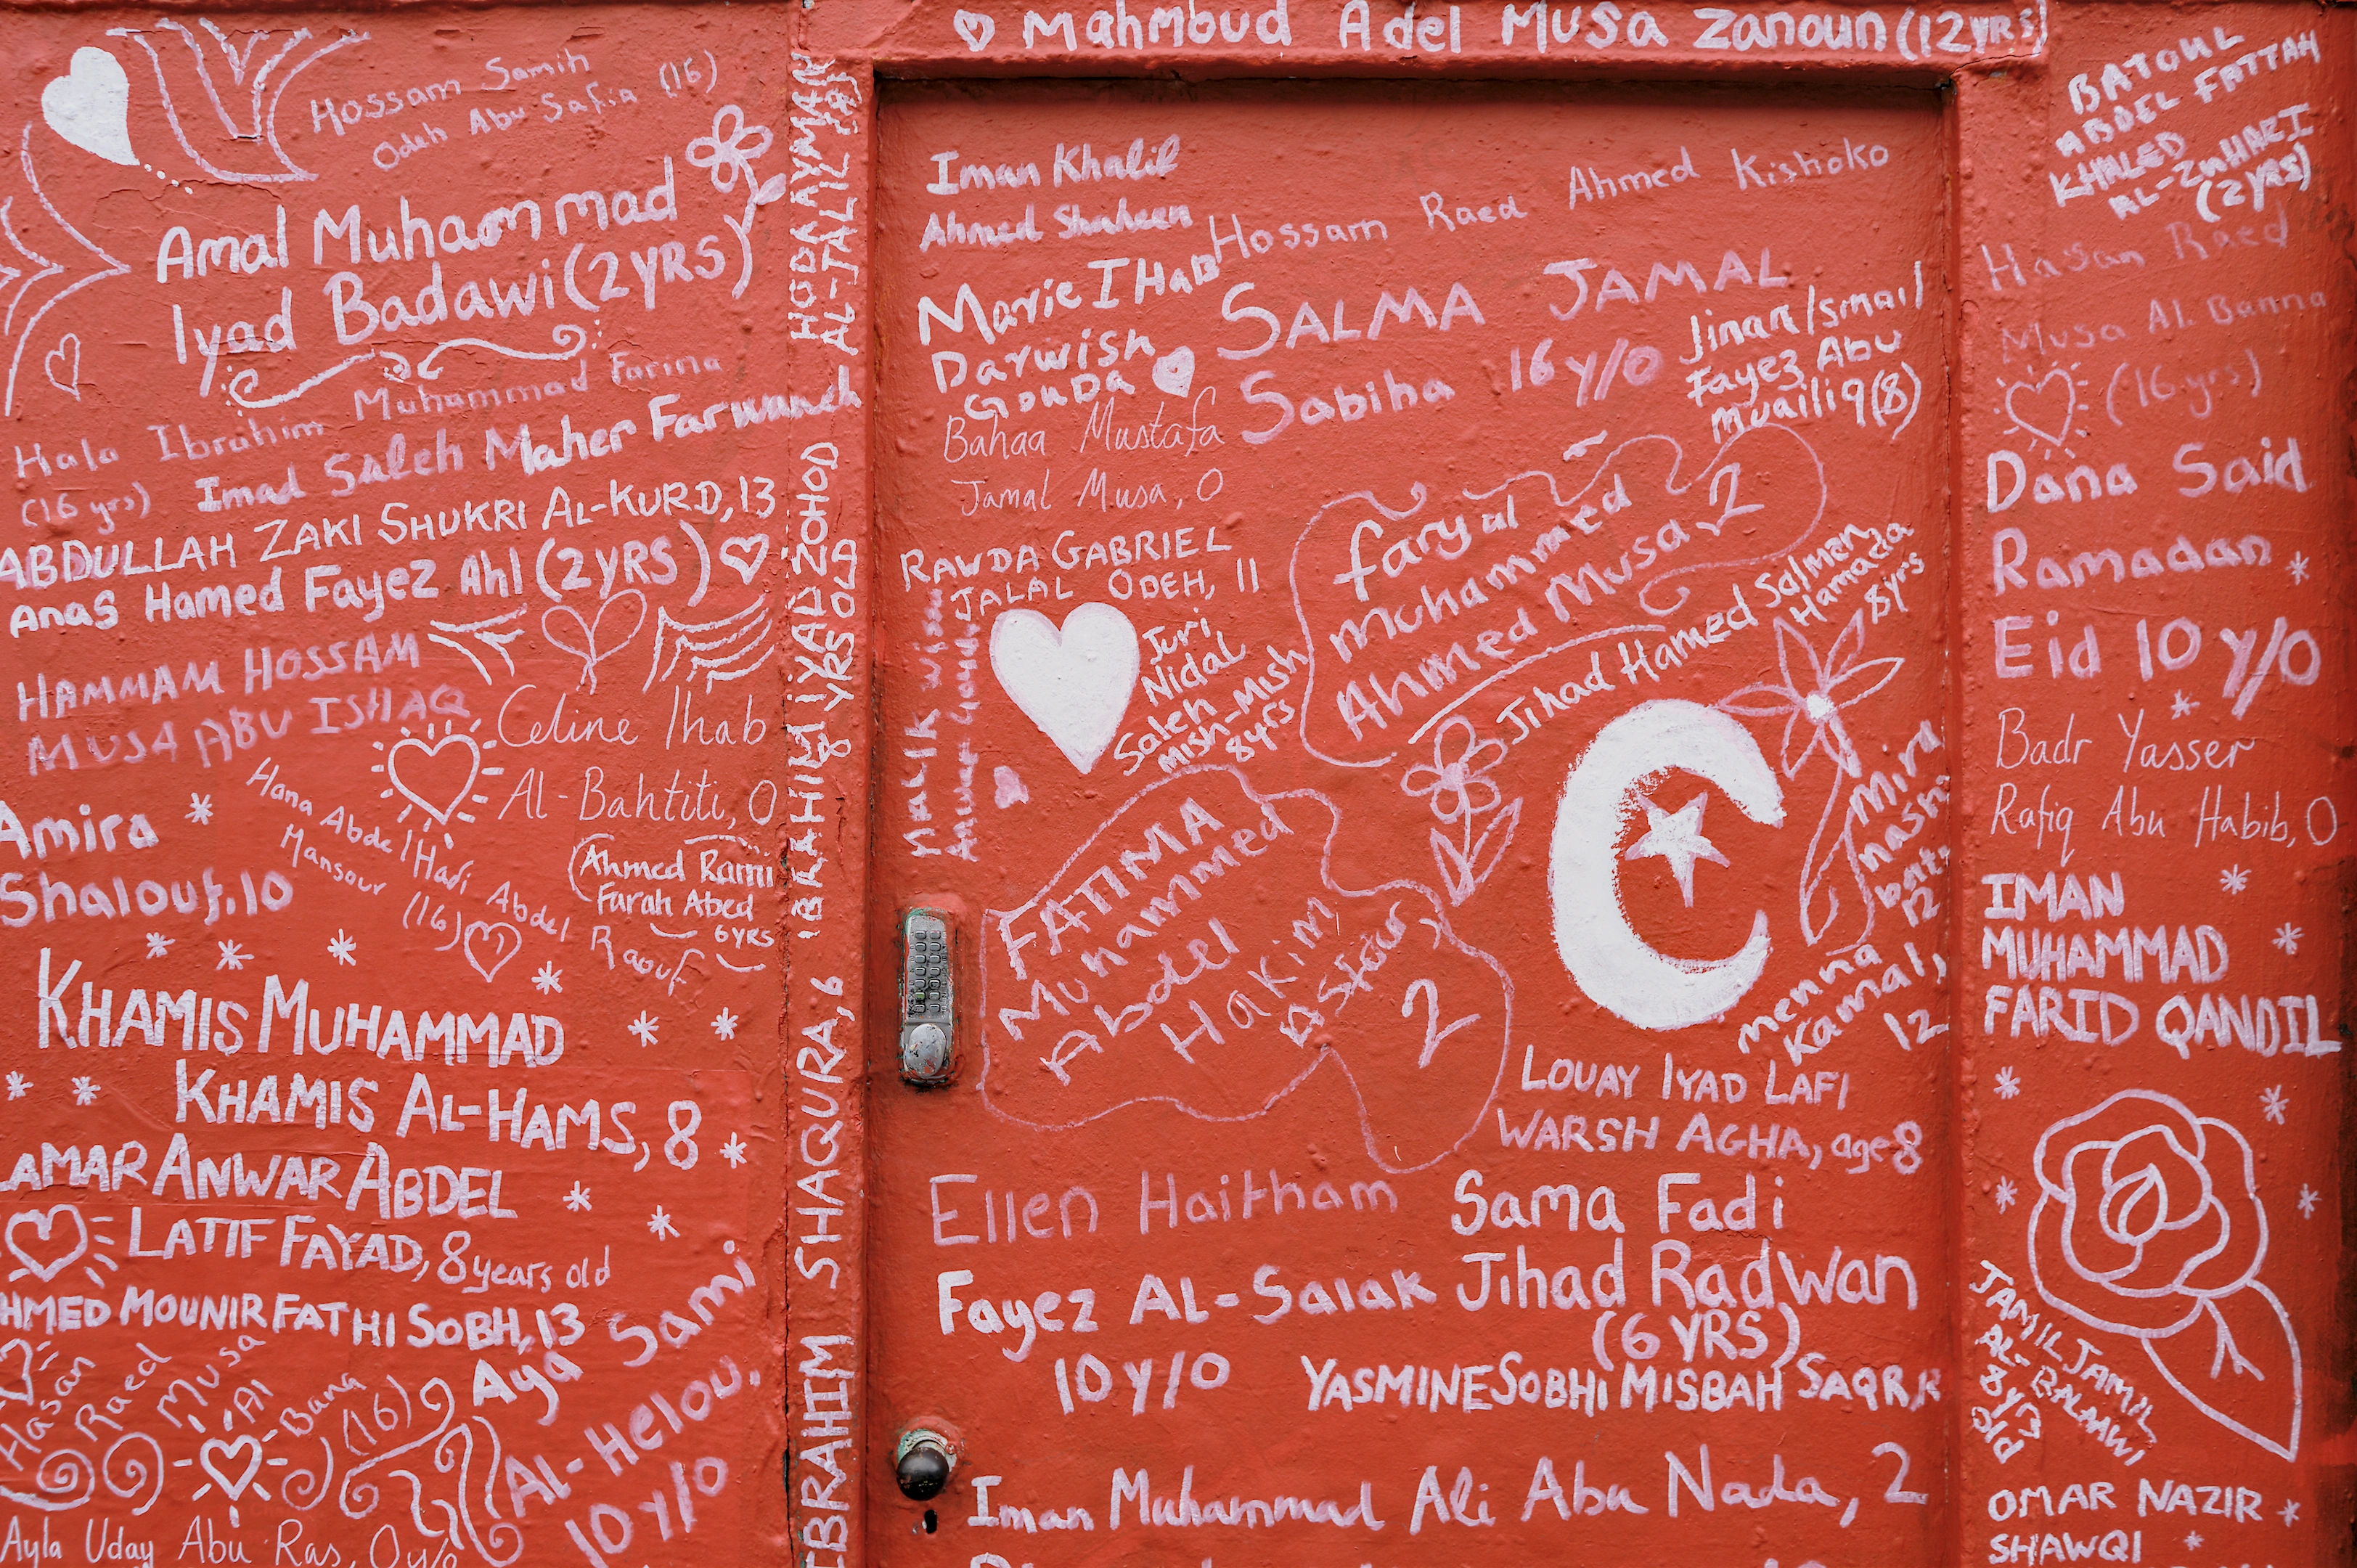 Mahmoud Adel Musa Zanoun (12YRS)
Hossam Samih
Odeh Abu Safia (16)
Amal Muhammad
Iyad Badawi (2YRS)
Hala Ibrahim Muhammad Farina
(16 yrs)
Imad Saleh Maher Farwaneh
ABDULLAH ZAKI SHUKRI AL-KURD, 13
Anas Hamed Fayez Ahl (2YRS)
HAMMAM HOSSAM
MUSA ABU ISHAQ
Celine Ihab
Al-Bahtiti, 0
Amira
Shalouf, 10
Hana Abdel Hadi Abdel Raouf
Mansour (16)
Ahmed Rami
Farah Abed
6YRS
KHAMIS MUHAMMAD
KHAMIS AL-HAMS, 8
LAMAR ANWAR ABDEL
LATIF FAYAD, 8 years old
AHMED MOUNIR FATHI SOBH, 13
Hasan Raed Musa Al Bana (16)
Aya Sami
Al-Helou,
10 y/o
Ayla Uday Abu Ras, 0 y/o
HODA AYMAN
AL-JALIL
IBRAHIM IYAD ZOHOD
8 YRS OLD
IBRAHIM SHAQURA, 6
Iman Khalil
Ahmed Shaheen
Hossam Raed Ahmed Kishoko
Marie IHab
Darwish
Gouda
SALMA JAMAL
Sabiha 16 y/o
Jinan Ismail
Fayez Abu
Muailiq (8)
Bahaa Mustafa
Jamal Musa, 0
RAWDA GABRIEL
JALAL ODEH, 11
Malik
Juri
Nidal
Saleh Mish-Mish
8yrs
faryal
Muhammed
Ahmed Musa, 2
Jihad Hamed Salman
Hamada
8yrs
FATIMA
Muhammed
Abdel
Hakim
2
Mira
12
Menna
Kamal,
12
LOUAY IYAD LAFI
WARSH AGHA, age 8
Ellen Haitham
Fayez AL-Salak
10 y/o
Sama Fadi
Jihad Radwan
(6 YRS)
YASMINE SOBHI MISBAH SAQR,
Iman Muhammad Ali Abu Nada, 2
BATOUL
ABDEL FATTAH
KHALED
AL-ZUHARI
(2YRS)
Hasan Raed
Musa Al Banna
(16 yrs)
Dana Said
Ramadan
Eid 10 y/o
Badr Yasser
Rafiq Abu Habib, 0
IMAN
MUHAMMAD
FARID QANDIL
JAMIL JAMIL
AL-BALAAWI
8yrs
old
OMAR NAZIR
SHAWQI